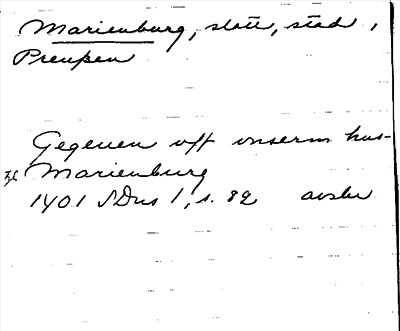 Marienburg, slott, stad,
Preuſsen
Gegeuen vff vnserm hus-
Marienburg
1401 SDns 1, s. 89 avskr